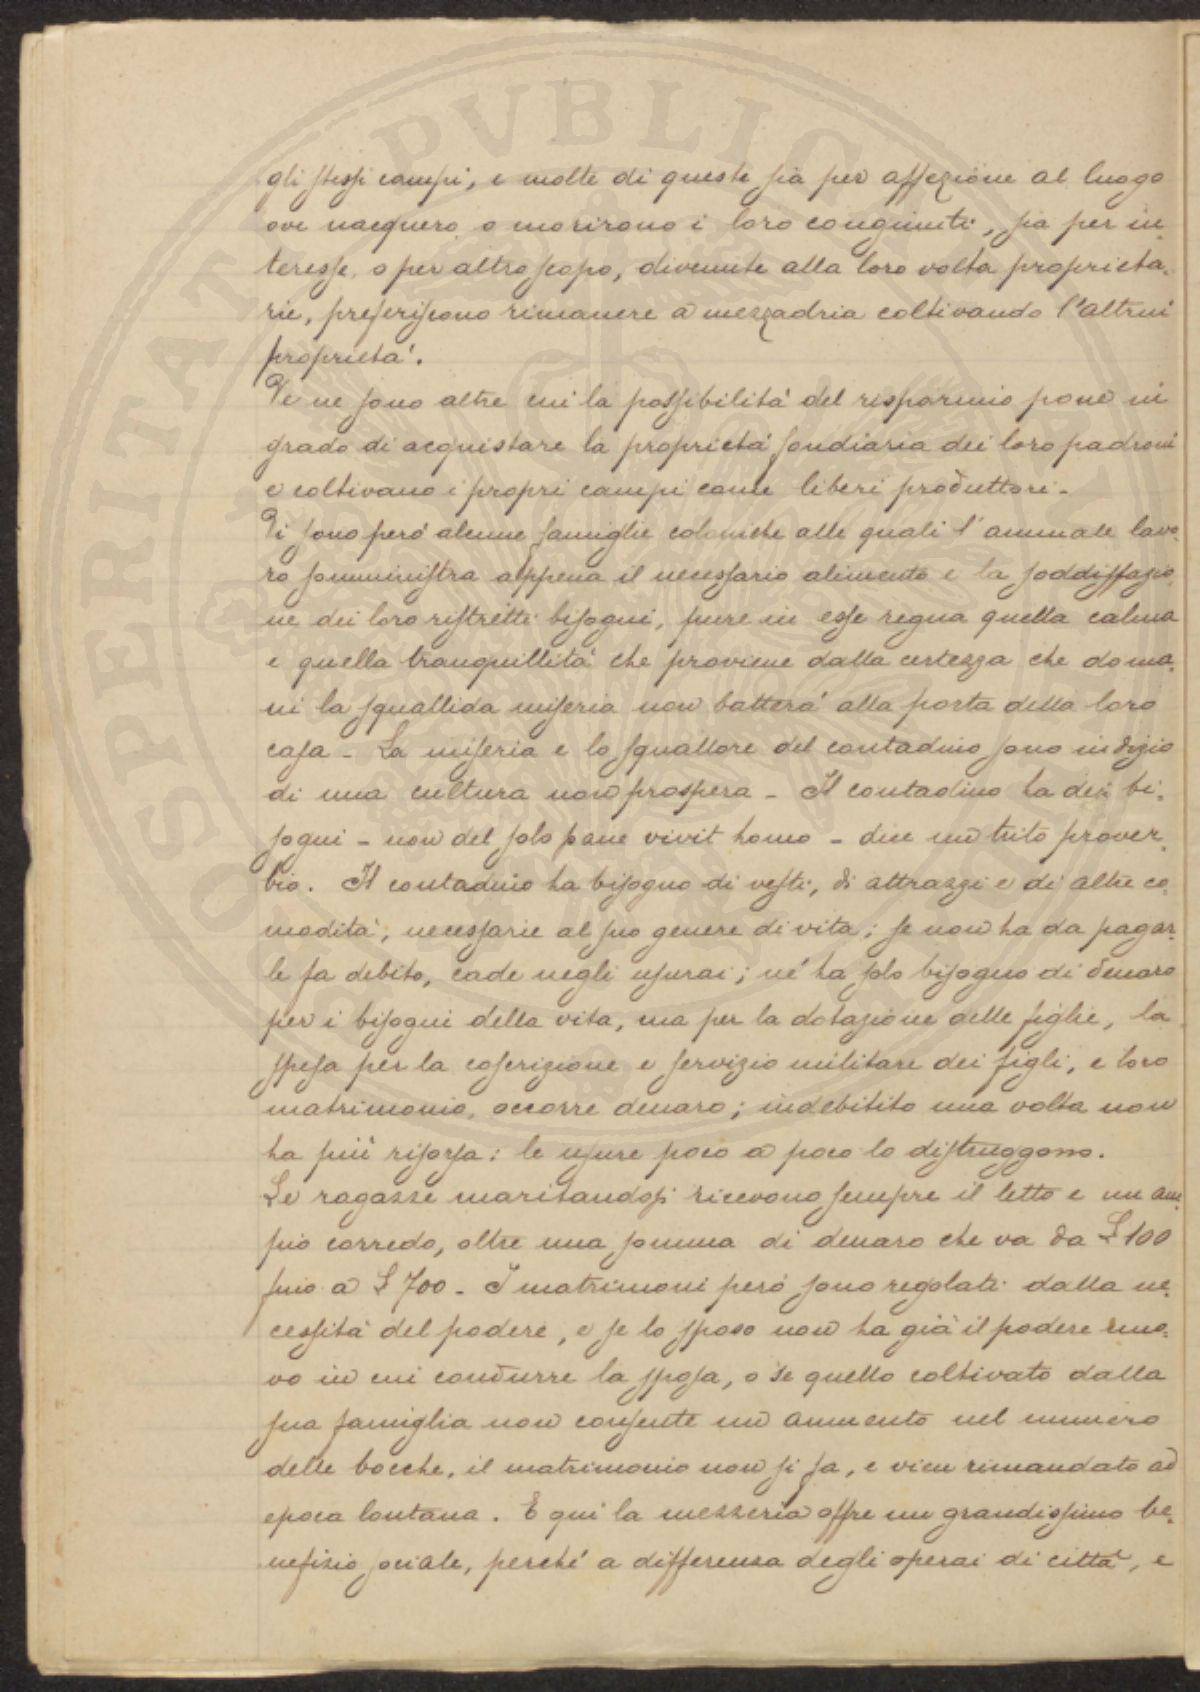 gli stessi campi, e molte di queste sia per affezione al luogo
ove nacquero o morirono i loro congiunti, sia per in-
teresse, o per altro scopo, divenute alla loro volta proprieta-
rie, preferiscono rimanere a mezzadria coltivando l'altrui
proprietà.
Ve ne sono altre cui la possibilità del risparmio pone in
grado di acquistare la proprietà fondiaria dei loro padroni
e coltivano i propri campi come liberi produttori -
Vi sono però alcune famiglie coloniche alle quali l'annuale lavo-
ro somministra appena il necessario alimento e la soddisfazio-
ne dei loro ristretti bisogni, pure in esse regna quella calma
e quella tranquillità che proviene dalla certezza che doma-
ni la squallida miseria non batterà alla porta della loro
casa - La miseria e lo squallore del contadino sono indizio
di una cultura non prospera - Il contadino ha dei bi-
sogni - non del solo pane vivit homo - dice un trito prover-
bio. Il contadino ha bisogno di vesti, di attrazzi e di altre co-
modità, necessarie al suo genere di vita; se non ha da pagar-
le fa debito, cade negli usurai; nè ha solo bisogno di denaro
per i bisogni della vita, ma per la dotazione delle figlie, la
spesa per la coscrizione e servizio militare dei figli, e loro
matrimonio, occorre denaro; indebitito una volta non
ha più risorsa: le usure poco a poco lo distruggono.
Le ragazze maritandosi ricevono sempre il letto e un am-
pio corredo, oltre una somma di denaro che va da £ 100
fino a £ 700 - I matrimoni però sono regolati dalla ne-
cessità del podere, e se lo sposo non ha già il podere nuo-
vo in cui condurre la sposa, o se quello coltivato dalla
sua famiglia non consente un aumento nel numero
delle bocche, il matrimonio non si fa, e vien rimandato ad
epoca lontana. E qui la mezzeria offre un grandissimo be-
nefizio sociale, perchè a differenza degli operai di città, e